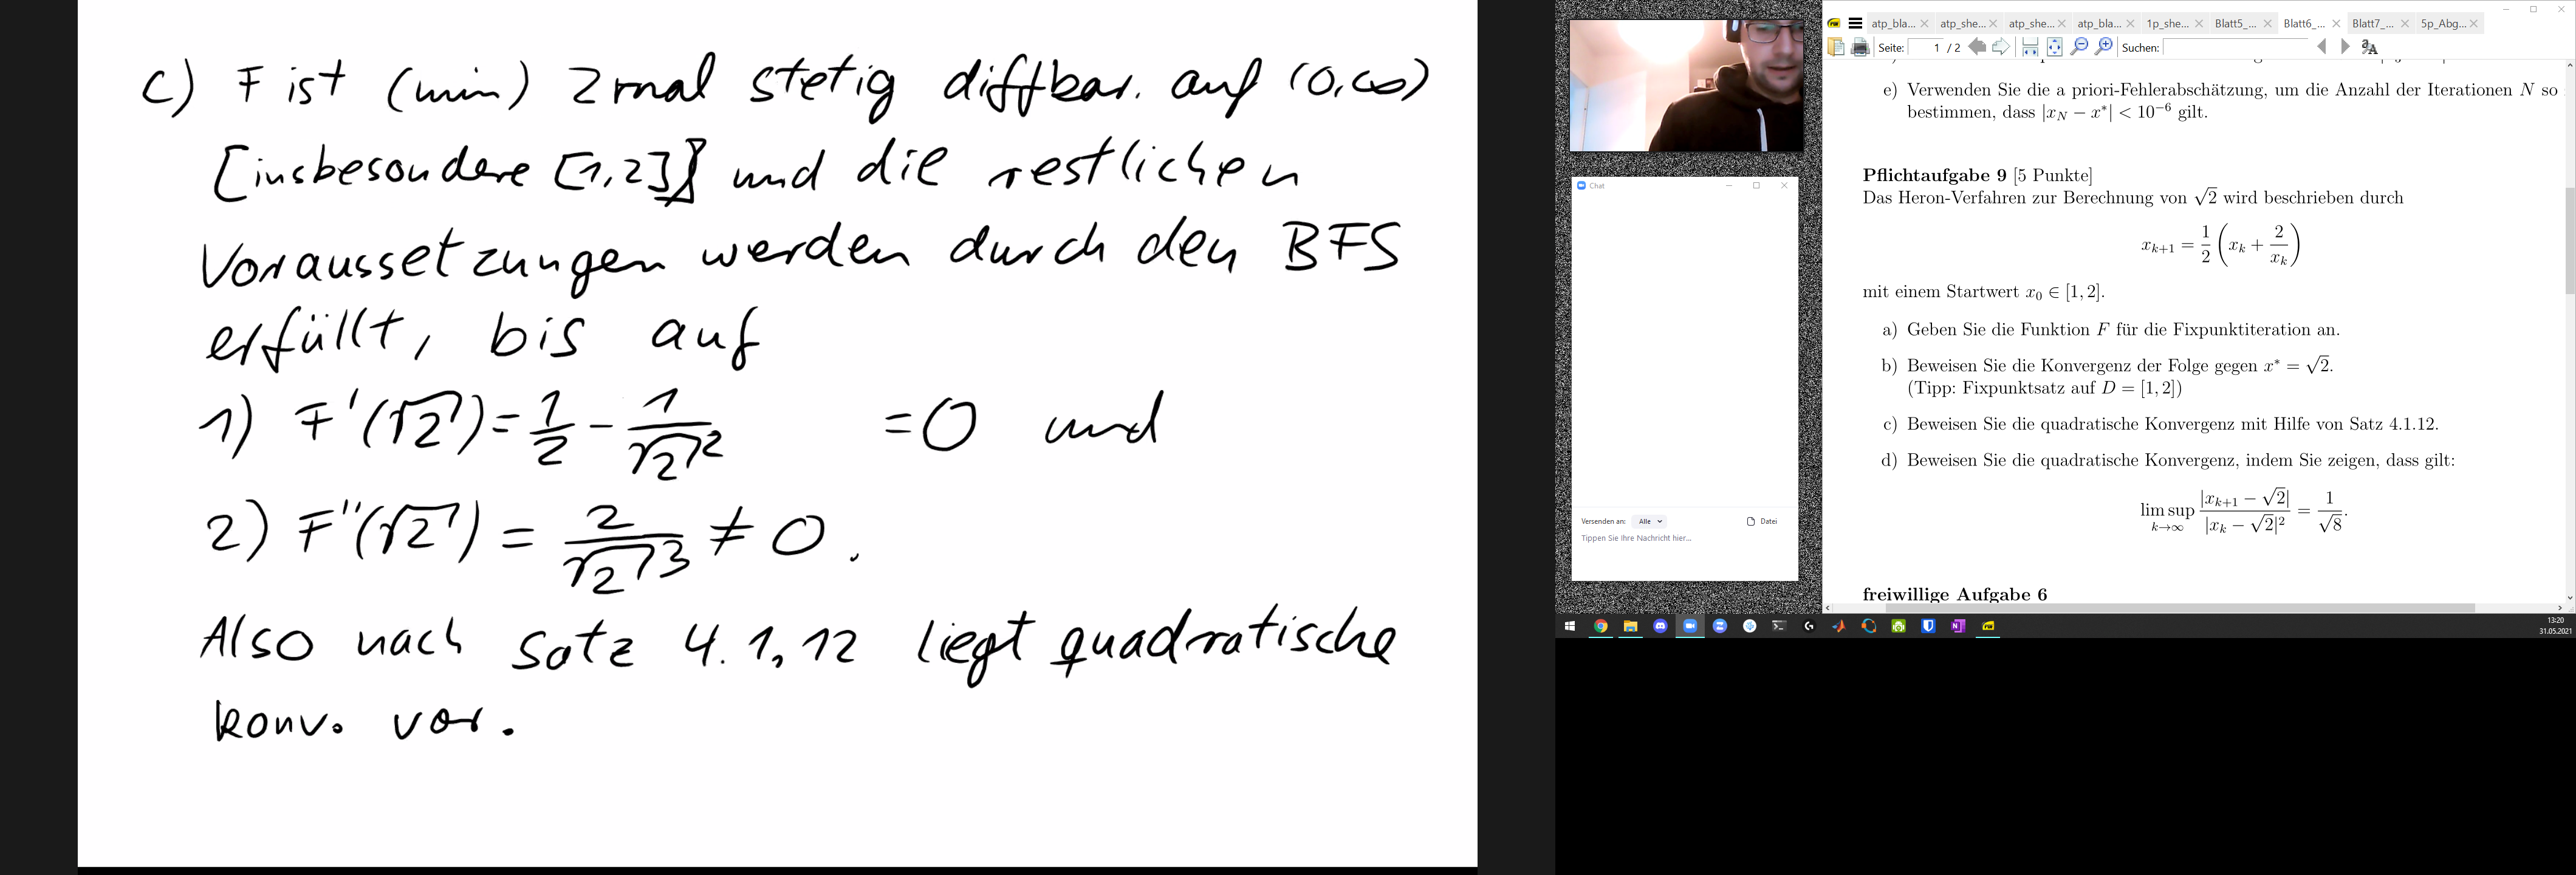 c) F ist (min) 2 mal stetig diffbar. auf (0,∞)
[insbesondere [1,2]] und die restlichen
Voraussetzungen werden durch den BFS
erfüllt, bis auf
1) F'(√2) = 1/2 - 1/√2² = 0 und
2) F''(√2) = 2/√2³ ≠ 0.
Also nach Satz 4.1.12 liegt quadratische
Konv. vor.
Chat
Versenden an: Alle Datei
Tippen Sie Ihre Nachricht hier...
atp_bla... atp_she... atp_she... atp_bla... 1p_she... Blatt5_... Blatt6_... Blatt7_... 5p_Abg...
Seite: 1 / 2 Suchen:
e) Verwenden Sie die a priori-Fehlerabschätzung, um die Anzahl der Iterationen N so
bestimmen, dass |x_N − x*| < 10⁻⁶ gilt.
Pflichtaufgabe 9 [5 Punkte]
Das Heron-Verfahren zur Berechnung von √2 wird beschrieben durch
x_{k+1} = 1/2 (x_k + 2/x_k)
mit einem Startwert x₀ ∈ [1, 2].
a) Geben Sie die Funktion F für die Fixpunktiteration an.
b) Beweisen Sie die Konvergenz der Folge gegen x* = √2.
(Tipp: Fixpunktsatz auf D = [1, 2])
c) Beweisen Sie die quadratische Konvergenz mit Hilfe von Satz 4.1.12.
d) Beweisen Sie die quadratische Konvergenz, indem Sie zeigen, dass gilt:
lim sup_{k→∞} |x_{k+1} − √2| / |x_k − √2|² = 1/√8.
freiwillige Aufgabe 6
13:20
31.05.2021